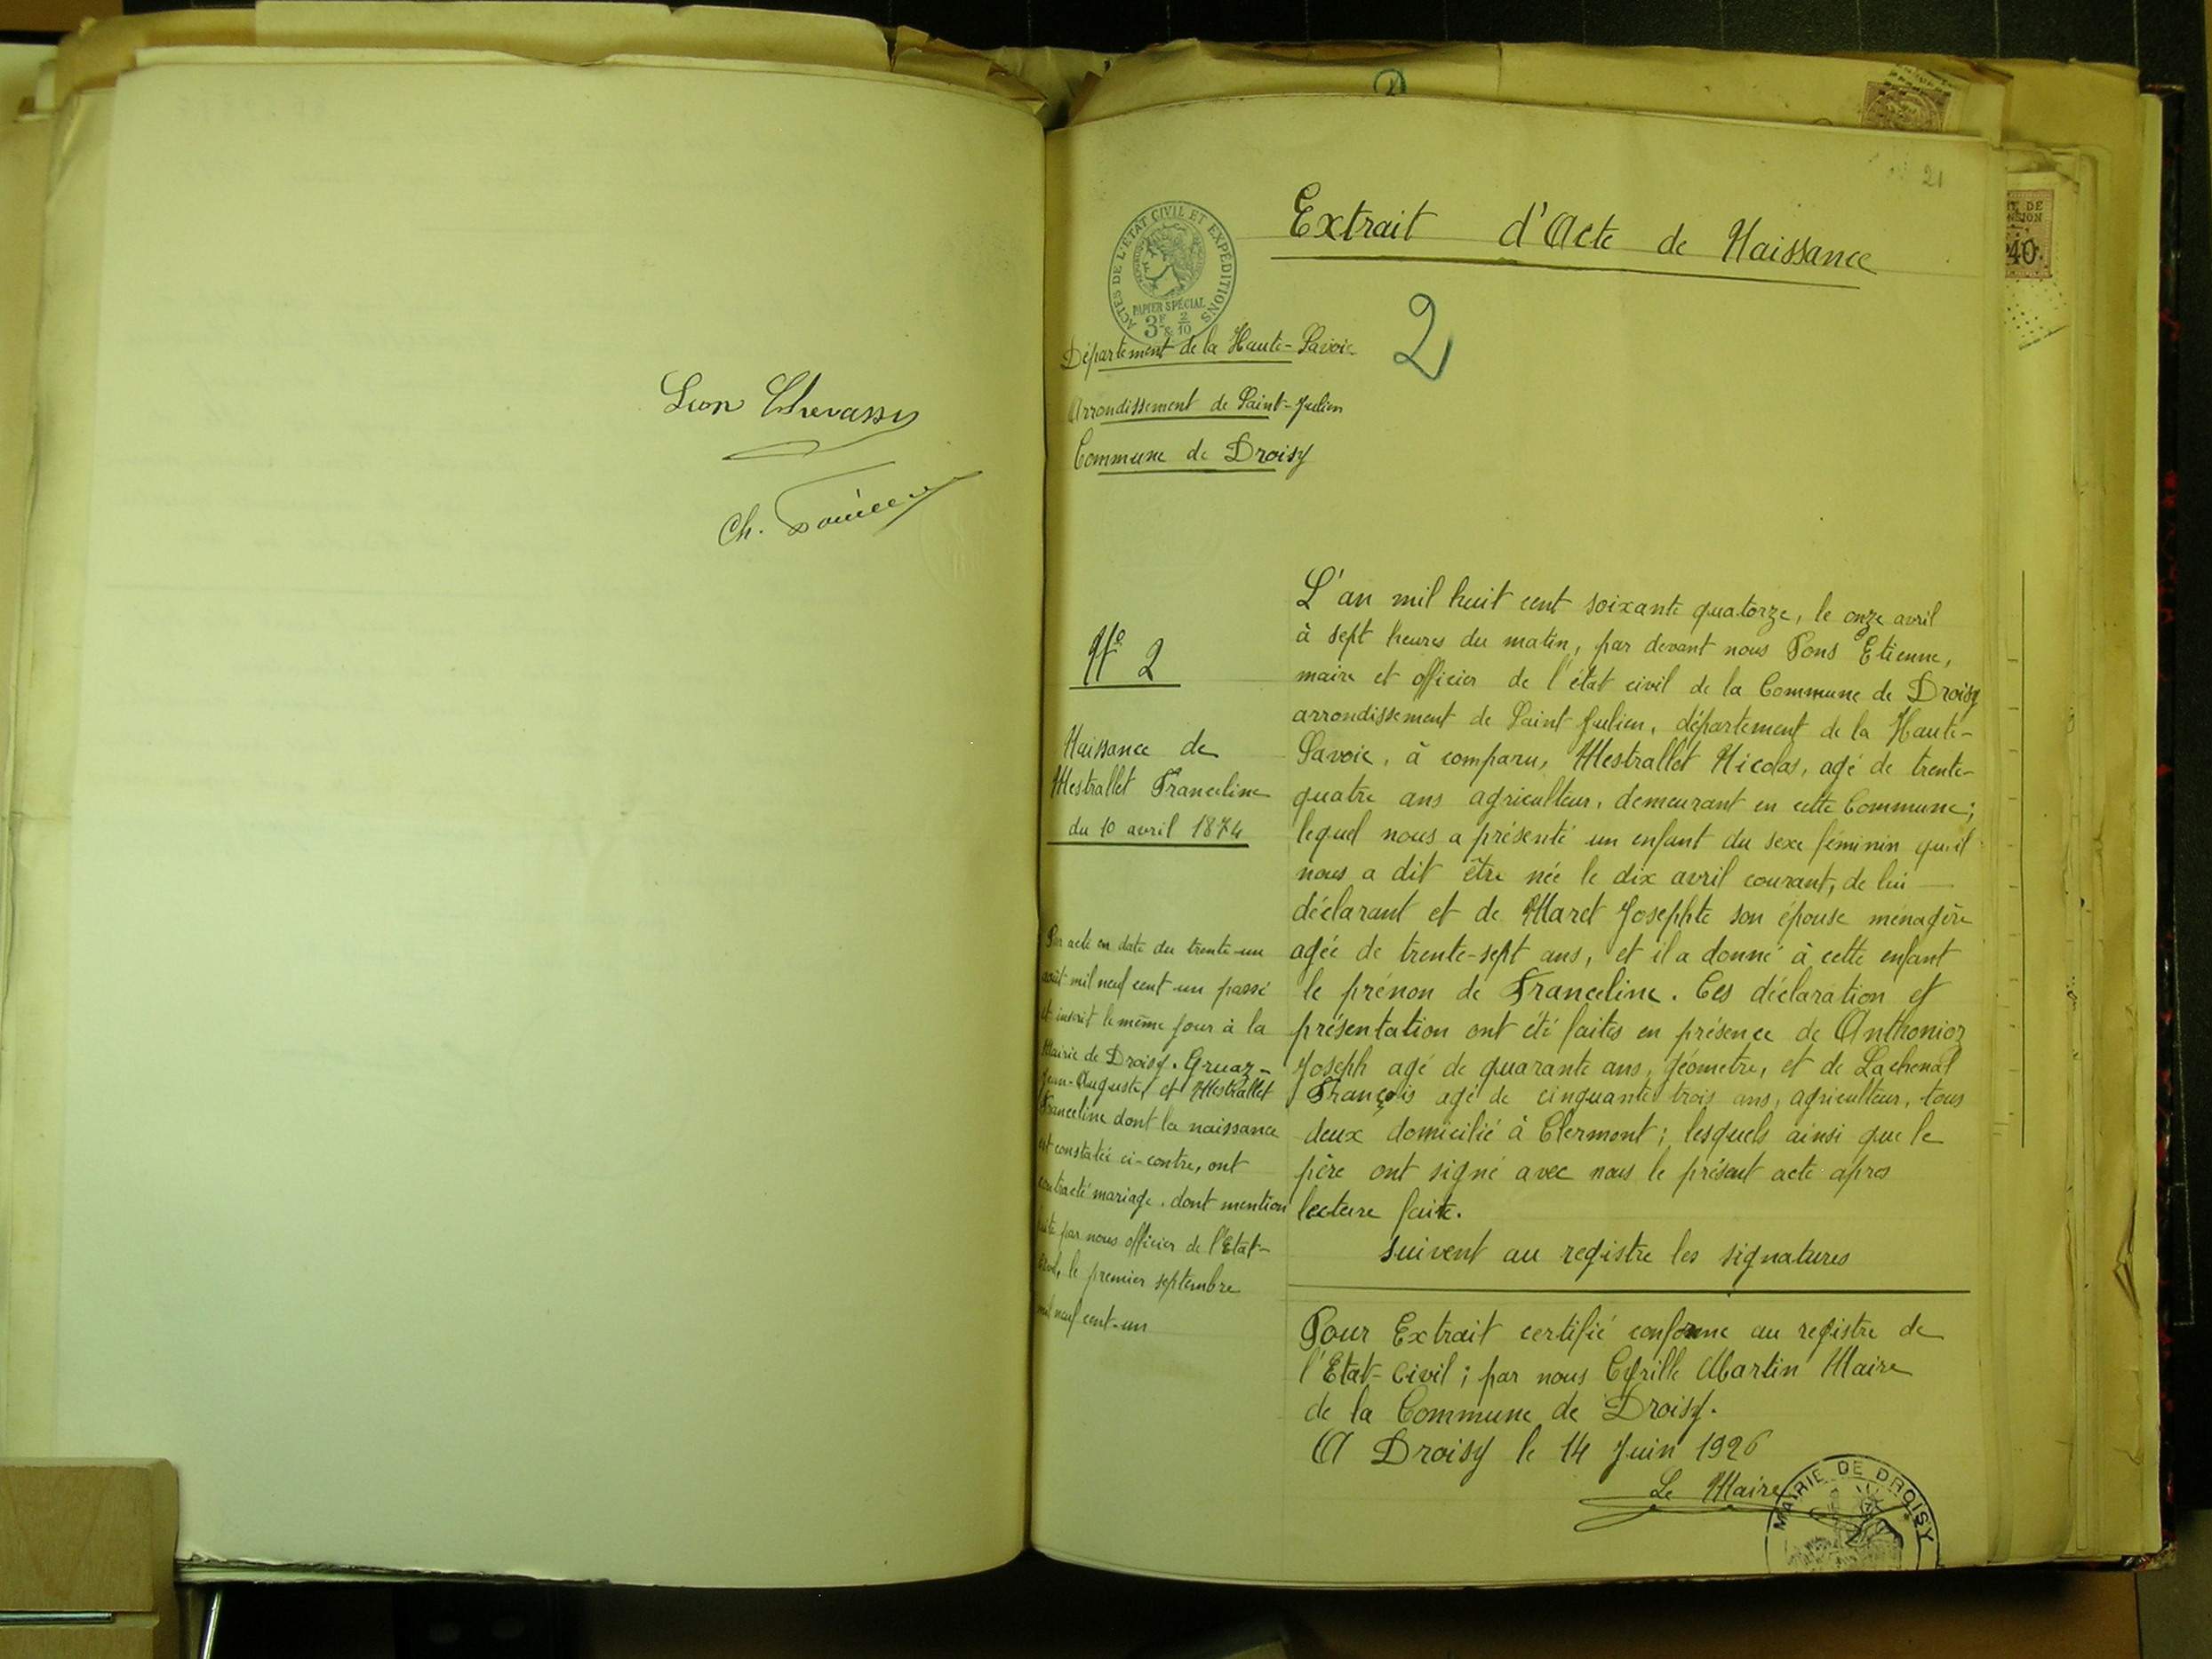 Léon Chevassu
Ch.
21
Extrait d'Acte de Naissance
ACTES DE L'ETAT CIVIL ET EXPEDITIONS
PAPIER SPECIAL
3F & 2/10
2
Département de la Haute-Savoie
Arrondissement de Saint-Julien
Commune de Droisy
N° 2
Naissance de
Mestrallet Franceline
du 10 avril 1874
Par acte en date du trente-un
août mil neuf cent un passé
et inscrit le même jour à la
Mairie de Droisy. Gruaz-
Jean-Auguste, et Mestrallet
Franceline dont la naissance
est constatée ci-contre, ont
contracté mariage. dont mention
faite par nous officier de l'Etat-
Civil, le premier septembre
mil neuf cent-un
L'an mil huit cent soixante quatorze, le onze avril
à sept heures du matin, par devant nous Pons Etienne,
maire et officier de l'état civil de la Commune de Droisy
arrondissement de Saint Julien, département de la Haute-
Savoie, à comparu, Mestrallet Nicolas, agé de trente-
quatre ans agriculteur, demeurant en cette Commune;
lequel nous a présenté un enfant du sexe féminin qu'il
nous a dit être née le dix avril courant, de lui
déclarant et de Maret Josephte son épouse ménagère
agée de trente-sept ans, et il a donné à cette enfant
le prénon de Franceline. Ces déclaration et
présentation ont été faites en présence de Anthonioz
Joseph agé de quarante ans, géometre, et de Lachenal
François agé de cinquante trois ans, agriculteur, tous
deux domicilié à Clermont; lesquels ainsi que le
père ont signé avec nous le présent acte apres
lecture faite.
suivent au registre les signatures
Pour Extrait certifié conforme au registre de
l'Etat-Civil; par nous Cyrille Martin Maire
de la Commune de Droisy.
A Droisy le 14 Juin 1926
Le Maire
MAIRIE DE DROISY
DE
40